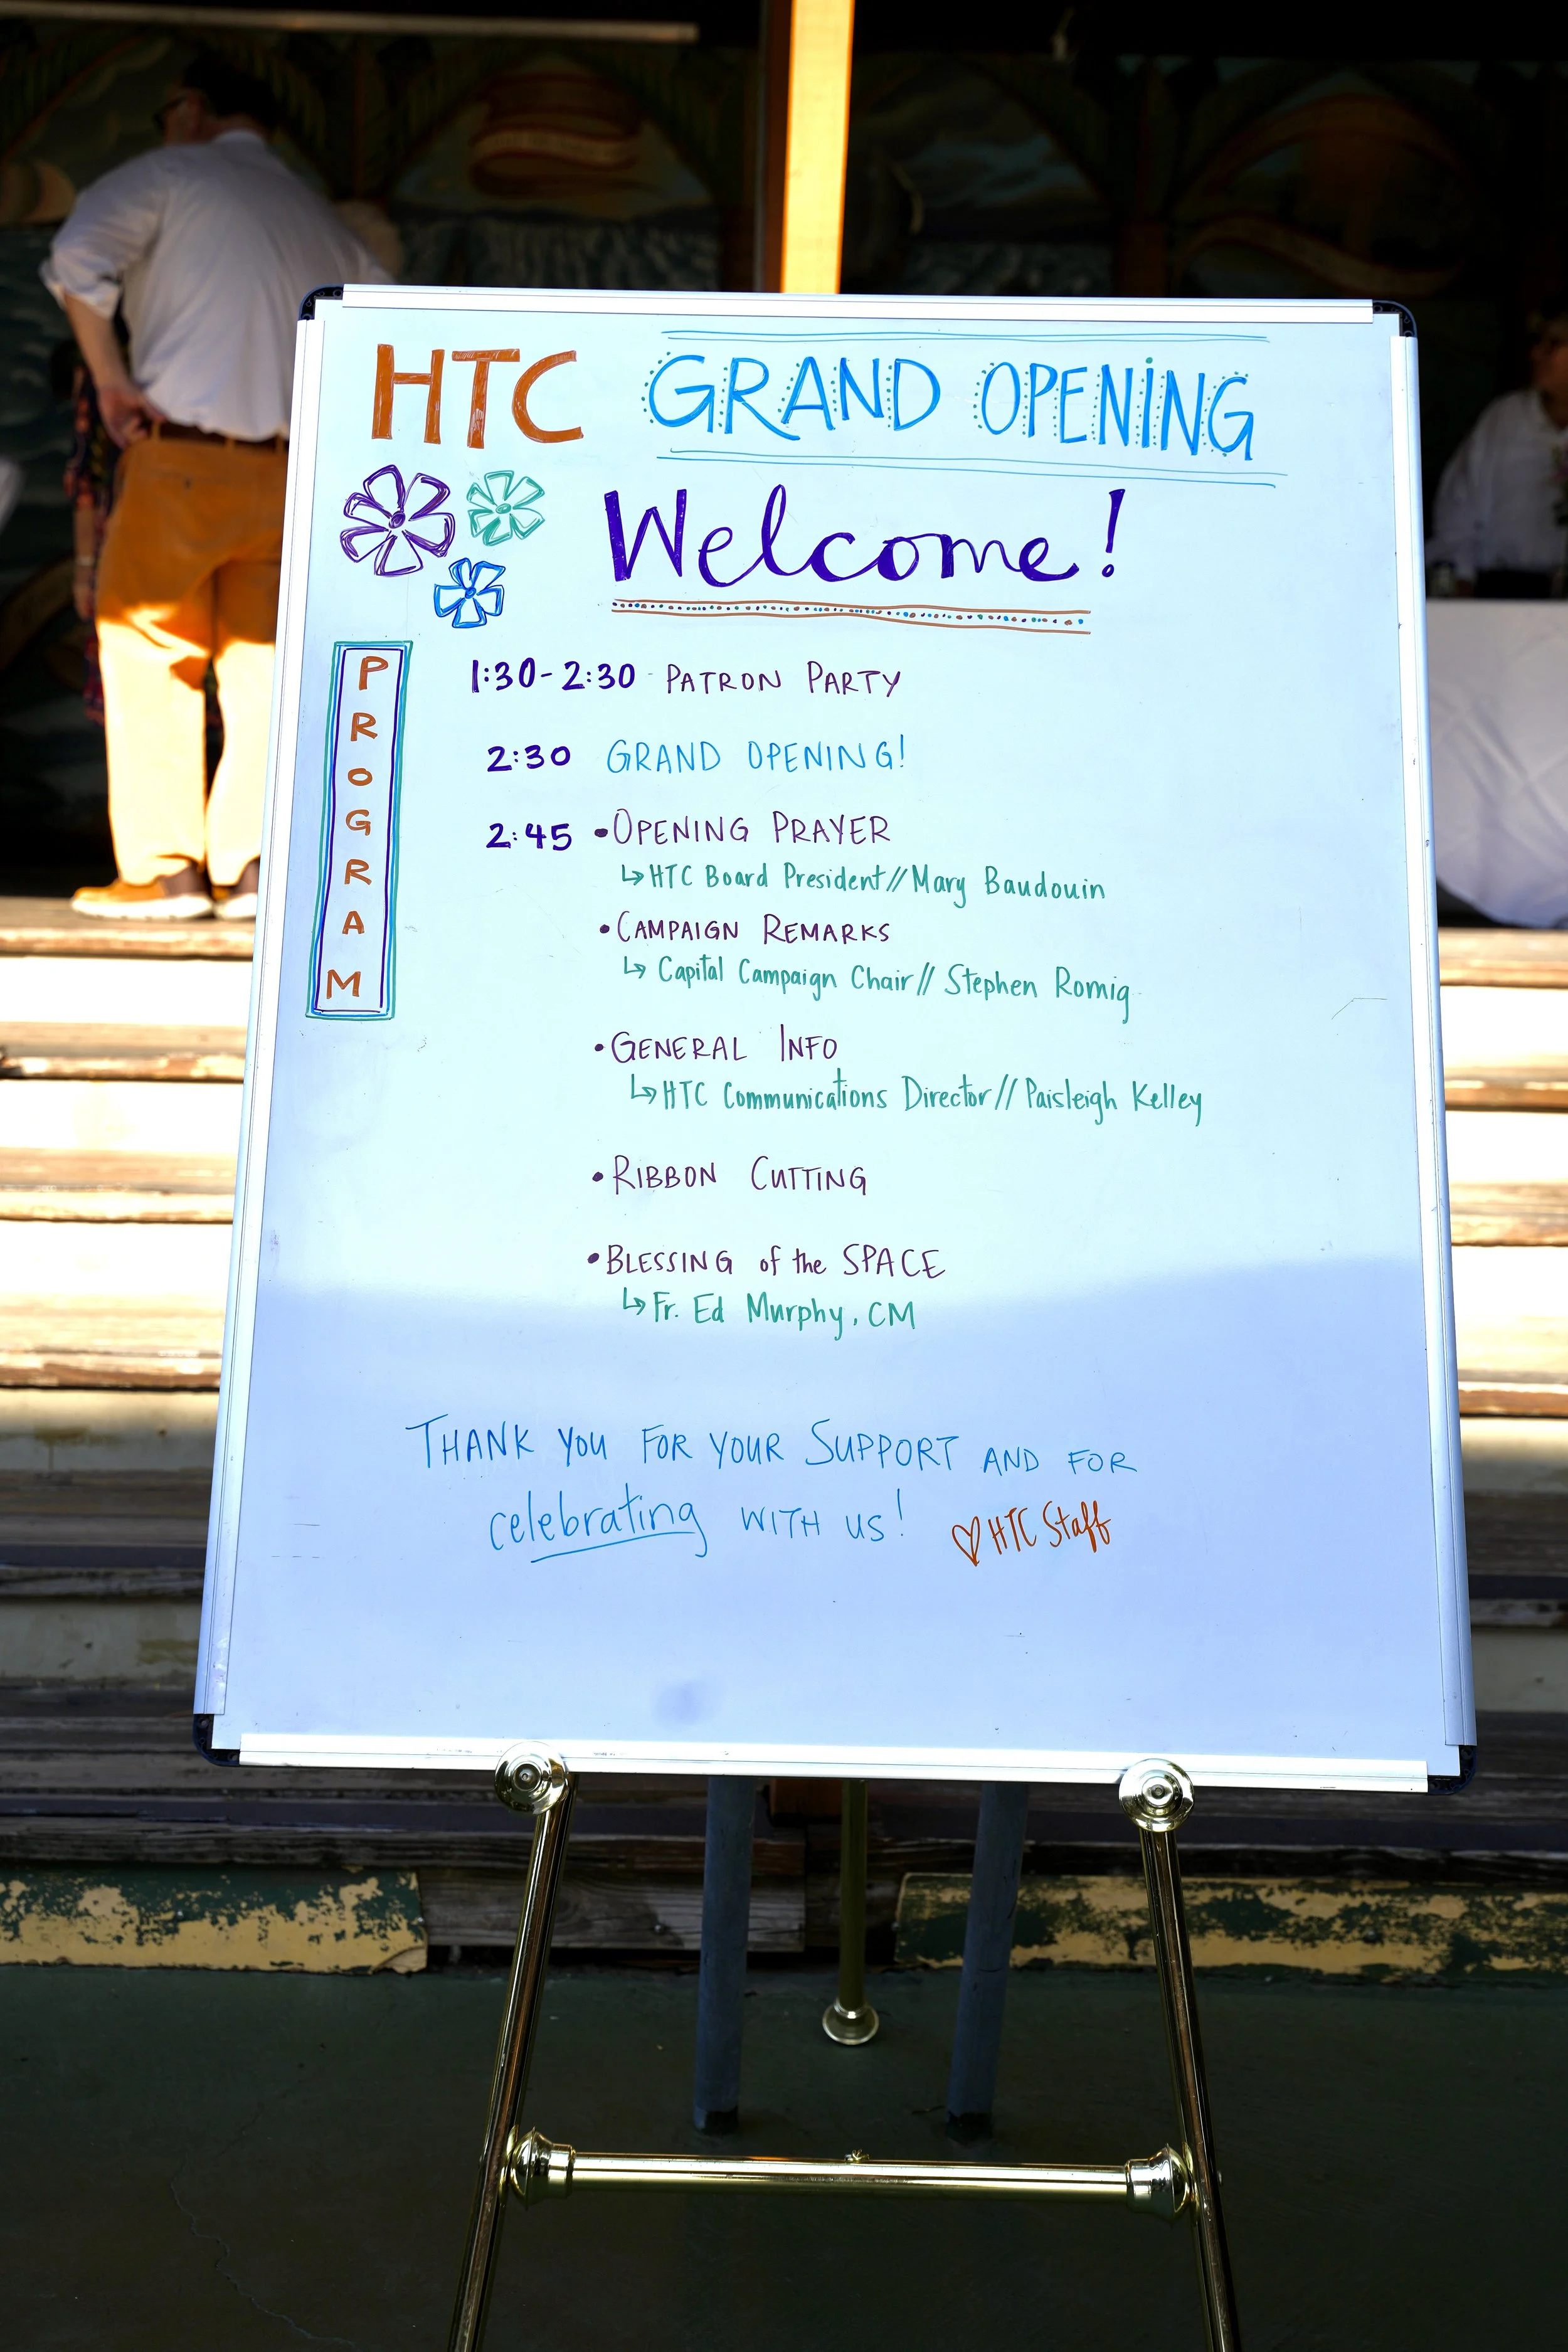 HTC GRAND OPENING
Welcome!
PROGRAM
1:30-2:30 PATRON PARTY
2:30 GRAND OPENING!
2:45 •OPENING PRAYER
↳HTC Board President//Mary Baudouin
•CAMPAIGN REMARKS
↳ Capital Campaign Chair// Stephen Romig
•GENERAL INFO
↳HTC Communications Director//Paisleigh Kelley
•RIBBON CUTTING
•BLESSING of the SPACE
↳Fr. Ed Murphy, CM
THANK YOU FOR YOUR SUPPORT AND FOR
celebrating WITH US! ♡HTC Staff